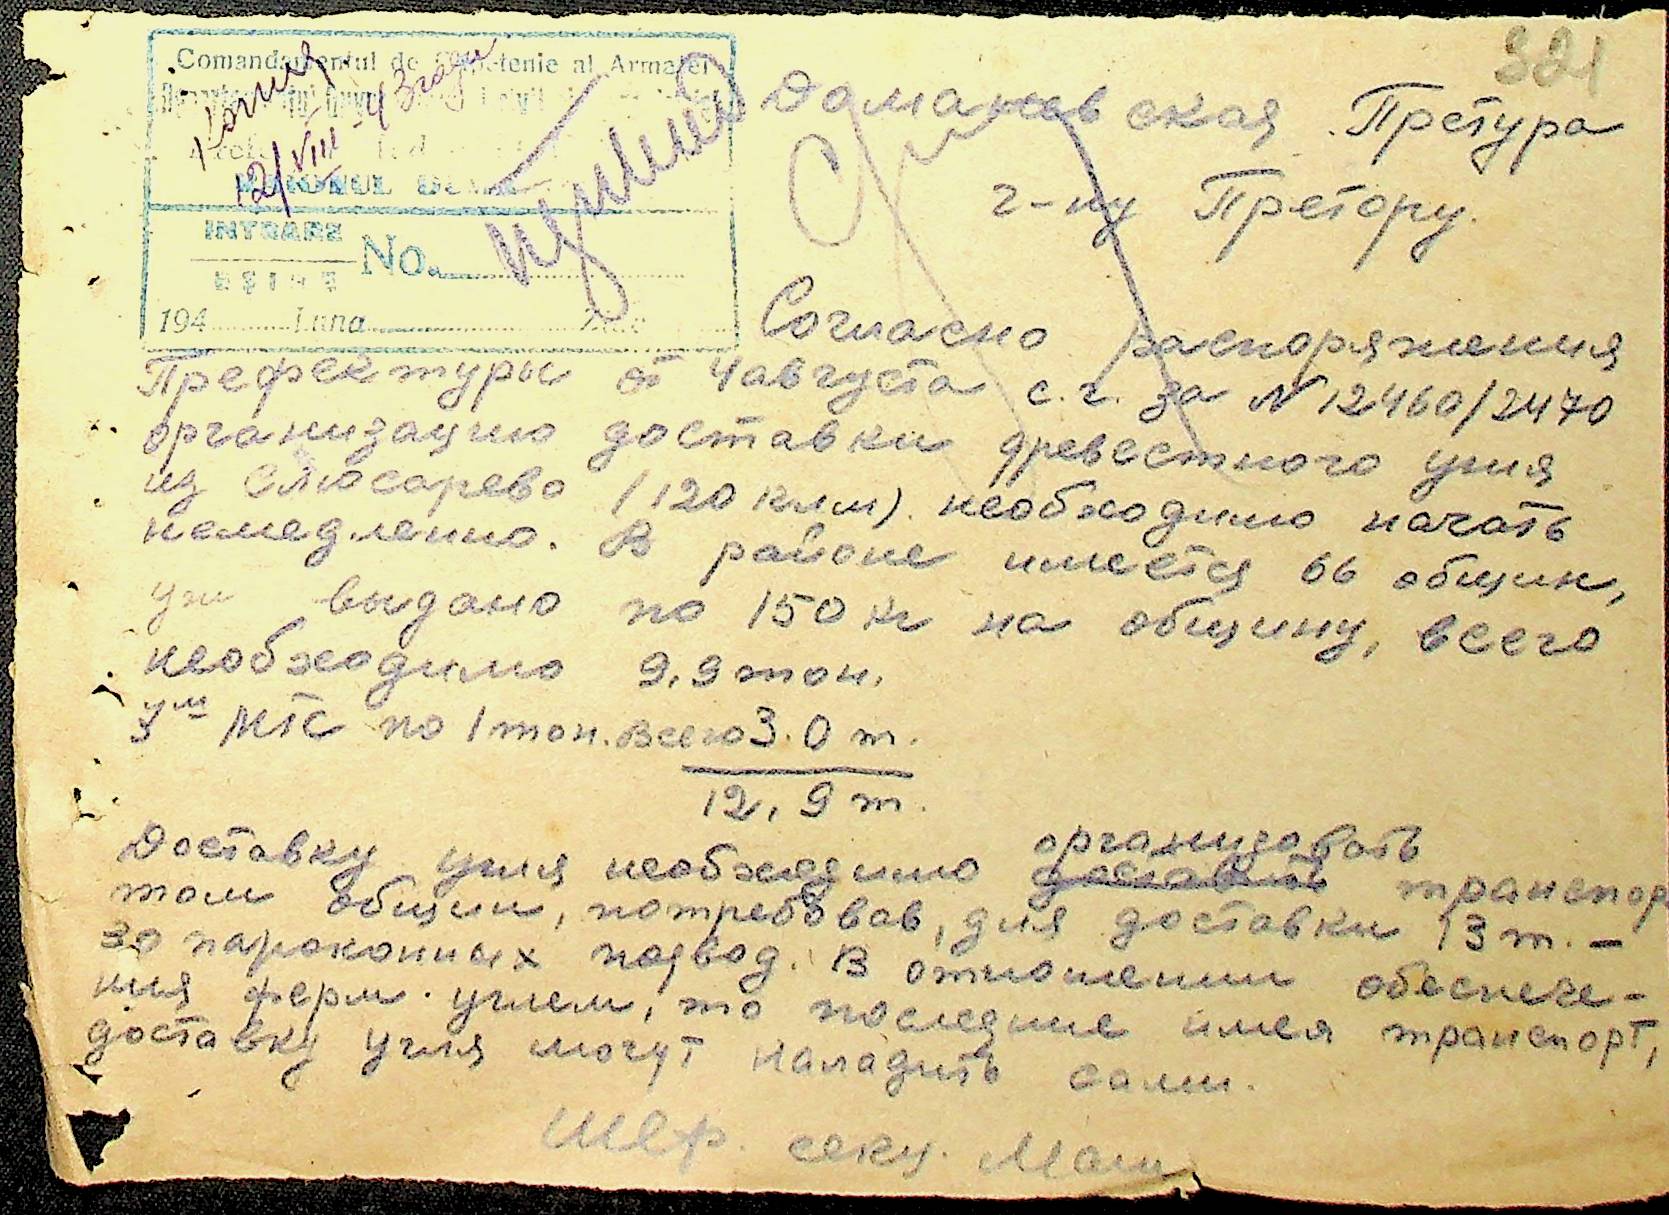 321
Comandamentul de Căpetenie al Armatei
INTRARE
IEȘIRE No.
194 Luna Ziua
12/VIII
Доманевская Претура
г-ну Претору.
Согласно распоряжения
Префектуры от 4 августа с.г. за N 12460/2470
организацию доставки древесного угля
из Слюсарево (120 клм). необходимо начать
немедленно. В районе имеется 66 общин,
уж выдано по 150 кг на общину, всего
необходимо 9,9 тон.
3м МТС по 1 тон. всего 3.0 т.
12,9 т.
организовать
Доставку угля необходимо доставить транспор
том общин, потребовав, для доставки 13 т. –
30 пароконных подвод. В отношении обеспече-
ния ферм. углем, то последние имея транспорт,
доставку угля могут наладить сами.
Шеф. секц.